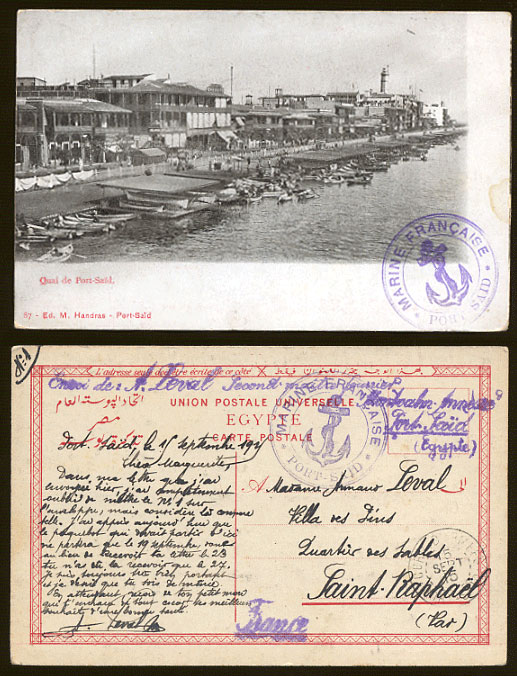 Quai de Port-Saïd,
87 - Ed. M. Handras - Port-Saïd
MARINE FRANÇAISE
PORT SAID
No 1
L'adresse seule doit être écrite de ce côté
Envoi de: A. Leval Second maître
UNION POSTALE UNIVERSELLE
اتحاد البوستة العام
EGYPTE
مصر
CARTE POSTALE
Port-Saïd
(Egypte)
MARINE FRANÇAISE
PORT-SAID
Port-Saïd, le 15 septembre 191
Chère Marguerite,
Dans ma lettre que j'ai
envoyée hier, j'ai complètement
oublié de mettre le No 1 sur
l'enveloppe, mais considère les comme
telle. J'ai appris aujourd'hui que
le paquebot qui devait partir d'ici
ne partira que le 19 septembre
au lieu de recevoir la lettre le 23
tu n'as de la recevoir que le 27.
Je suis toujours très bien portant
et je désire que tu sois de même.
En attendant, reçois de ton petit mari
qui t'embrasse
souhaits d'une bonne santé.
A. Leval
A Madame Leval
Villa des Pins
Quartier des Sables
Saint-Raphaël
(Var)
France
16
SEPT